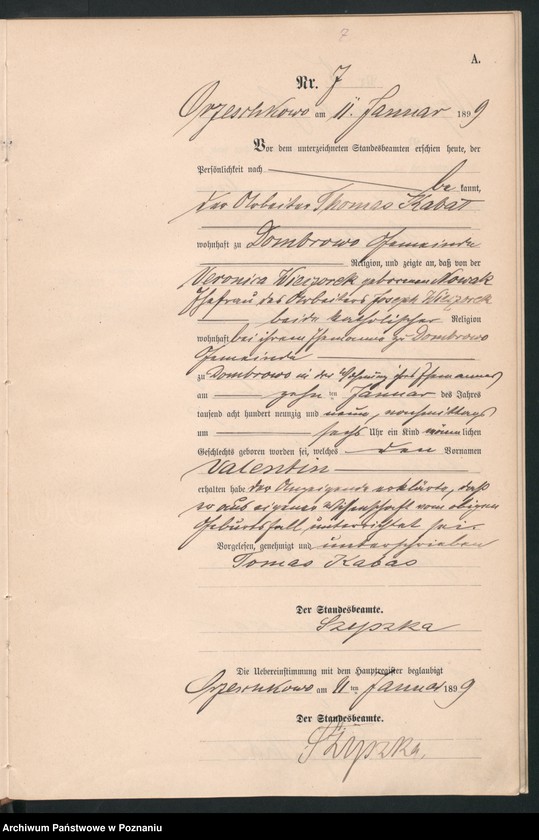 7
A.
Nr. 7
Orzeschkowo am 11. Januar 1899
Vor dem unterzeichneten Standesbeamten erschien heute, der
Persönlichkeit nach
be kannt,
der Arbeiter Thomas Kabat
wohnhaft zu Dombrowo Gemeinde
Religion, und zeigte an, daß von der
Veronica Wieczorek geborenen Nowak
Ehefrau des Arbeiters Joseph Wieczorek
beide katholischer Religion
wohnhaft bei ihrem Ehemanne zu Dombrowo
Gemeinde
zu Dombrowo in der Wohnung ihres Ehemannes
am zehn ten Januar des Jahres
tausend acht hundert neunzig und neun, nachmittags
um sechs Uhr ein Kind männlichen
Geschlechts geboren worden sei, welches den Vornamen
Valentin
erhalten habe der Anzeigende erklärte, daß
er aus eigener Wissenschaft vom obigen
Geburtsfall unterrichtet sei.
Vorgelesen, genehmigt und unterschrieben
Tomas Kabas
Der Standesbeamte.
Szypzka
Die Uebereinstimmung mit dem Hauptregister beglaubigt
Orzeschkowo am 11 ten Januar 1899
Der Standesbeamte.
Szypzka.
Archiwum Państwowe w Poznaniu